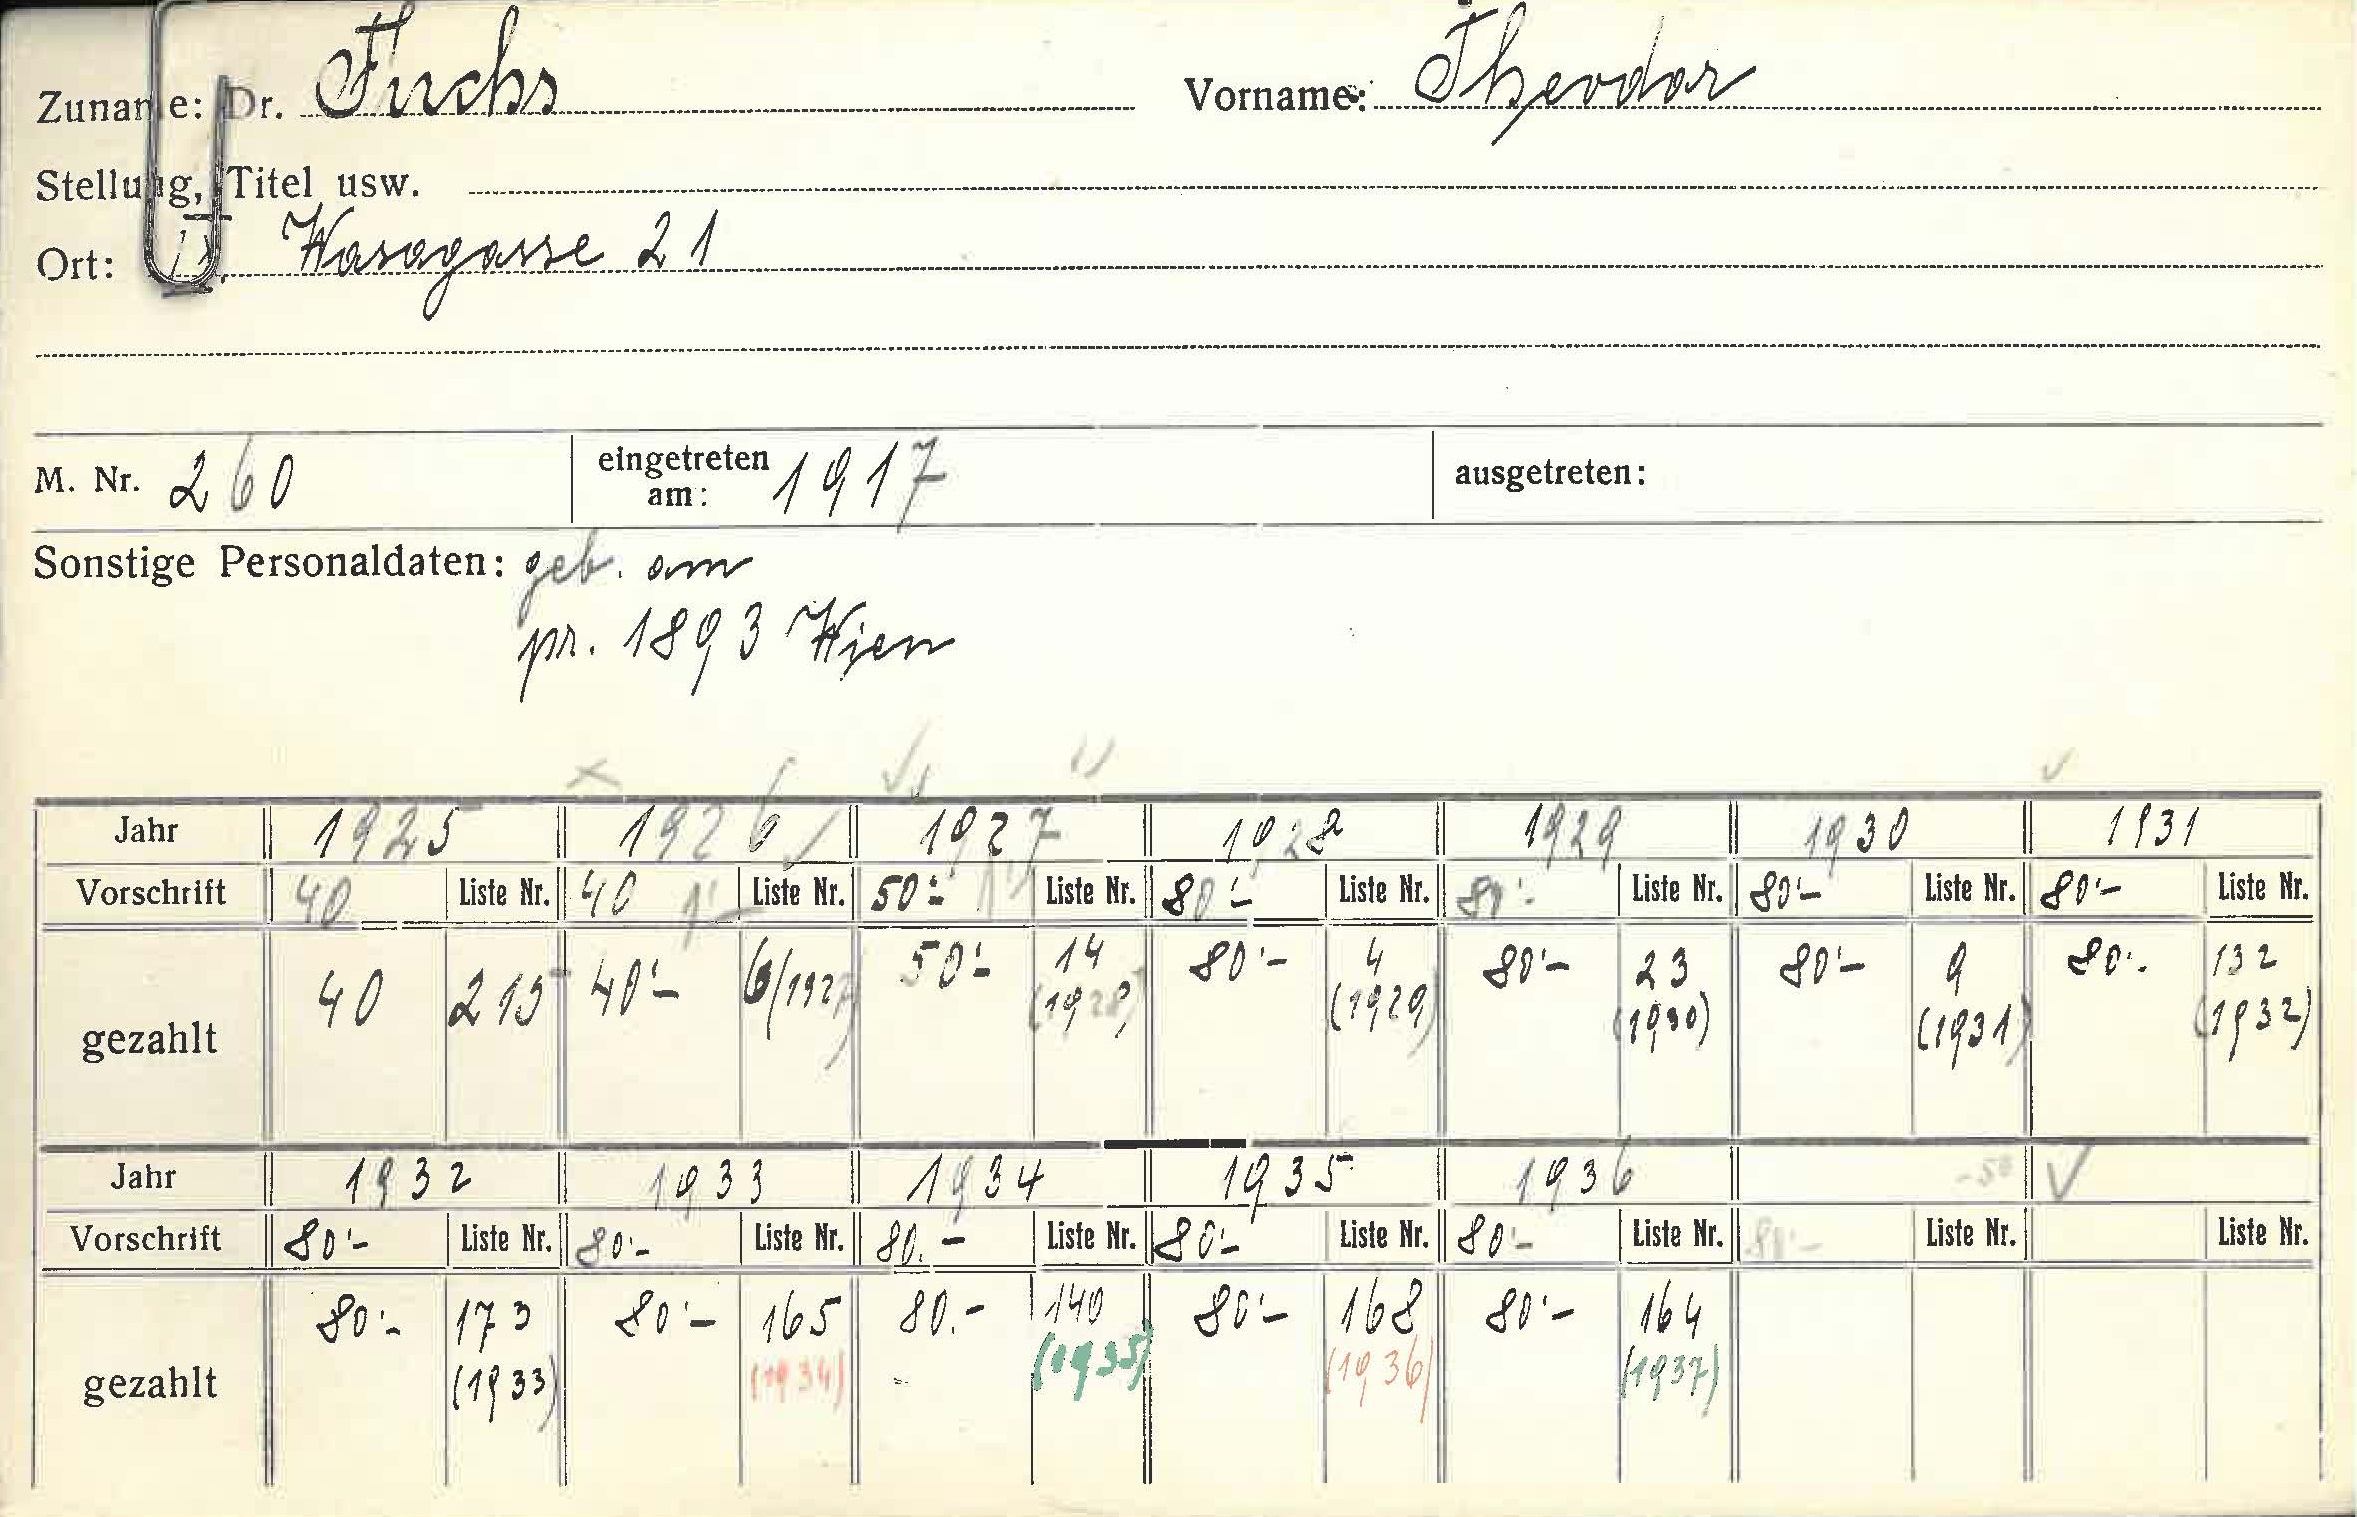 Zuname: Dr. Fuchs Vorname: Theodor
Stellung, Titel usw.
Ort: IX. Wasagasse 21
M. Nr. 260 eingetreten am: 1917 ausgetreten:
Sonstige Personaldaten: geb. am
pr. 1893 Wien
Jahr 1925 1926 1927 1928 1929 1930 1931
Vorschrift 40 Liste Nr. 40 Liste Nr. 50.- Liste Nr. 80.- Liste Nr. 80.- Liste Nr. 80.- Liste Nr. 80.- Liste Nr.
gezahlt 40 215 40.- 6/1927 50.- 14 (1928) 80.- 4 (1929) 80.- 23 (1930) 80.- 9 (1931) 80.- 132 (1932)
Jahr 1932 1933 1934 1935 1936 -50
Vorschrift 80.- Liste Nr. 80.- Liste Nr. 80.- Liste Nr. 80.- Liste Nr. 80.- Liste Nr. 80.- Liste Nr. Liste Nr.
gezahlt 80.- 173 (1933) 80.- 165 (1934) 80.- 140 (1935) 80.- 168 (1936) 80.- 164 (1937)